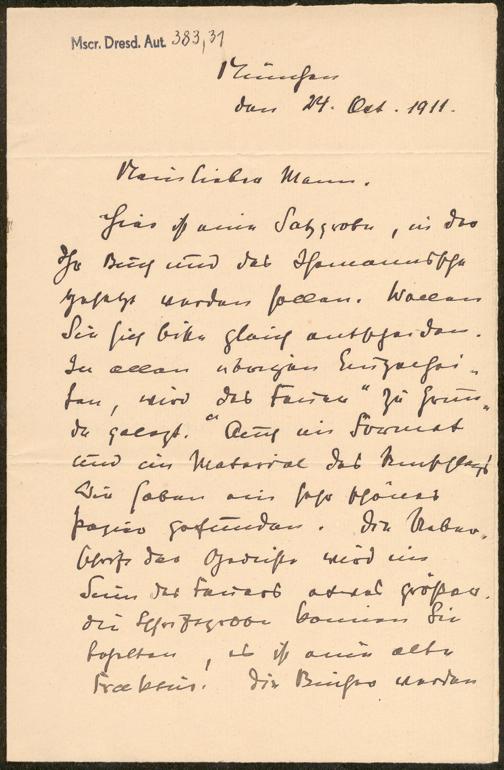 Mscr. Dresd. Aut. 383,31
München
den 24. Oct. 1911.
Mein lieber Mann.
Hier ist eine Satzprobe, in der
Ihr Buch und das
gesetzt werden sollen. Wollen
Sie sich bitte gleich entscheiden.
In allen übrigen Einzelhei-
ten, wird das "zu Grun-
de gelegt." Auch im Format
und im Material des Umschlags
Wir haben ein sehr schönes
Papier gefunden. Die Ueber-
schrift der Gedichte wird im
Sinn des etwas größer.
die Schriftprobe können Sie
behalten, es ist eine alte
Fraktur. Die Bücher werden